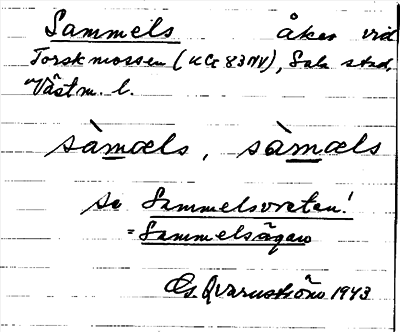 Sammels åker vid
Torskmossen (UG 83NV), Sala stad,
Västm. l.
sàmæls, sàmæls
se Sammelsvreten!
= Sammelsägen
Qvarnström 1943